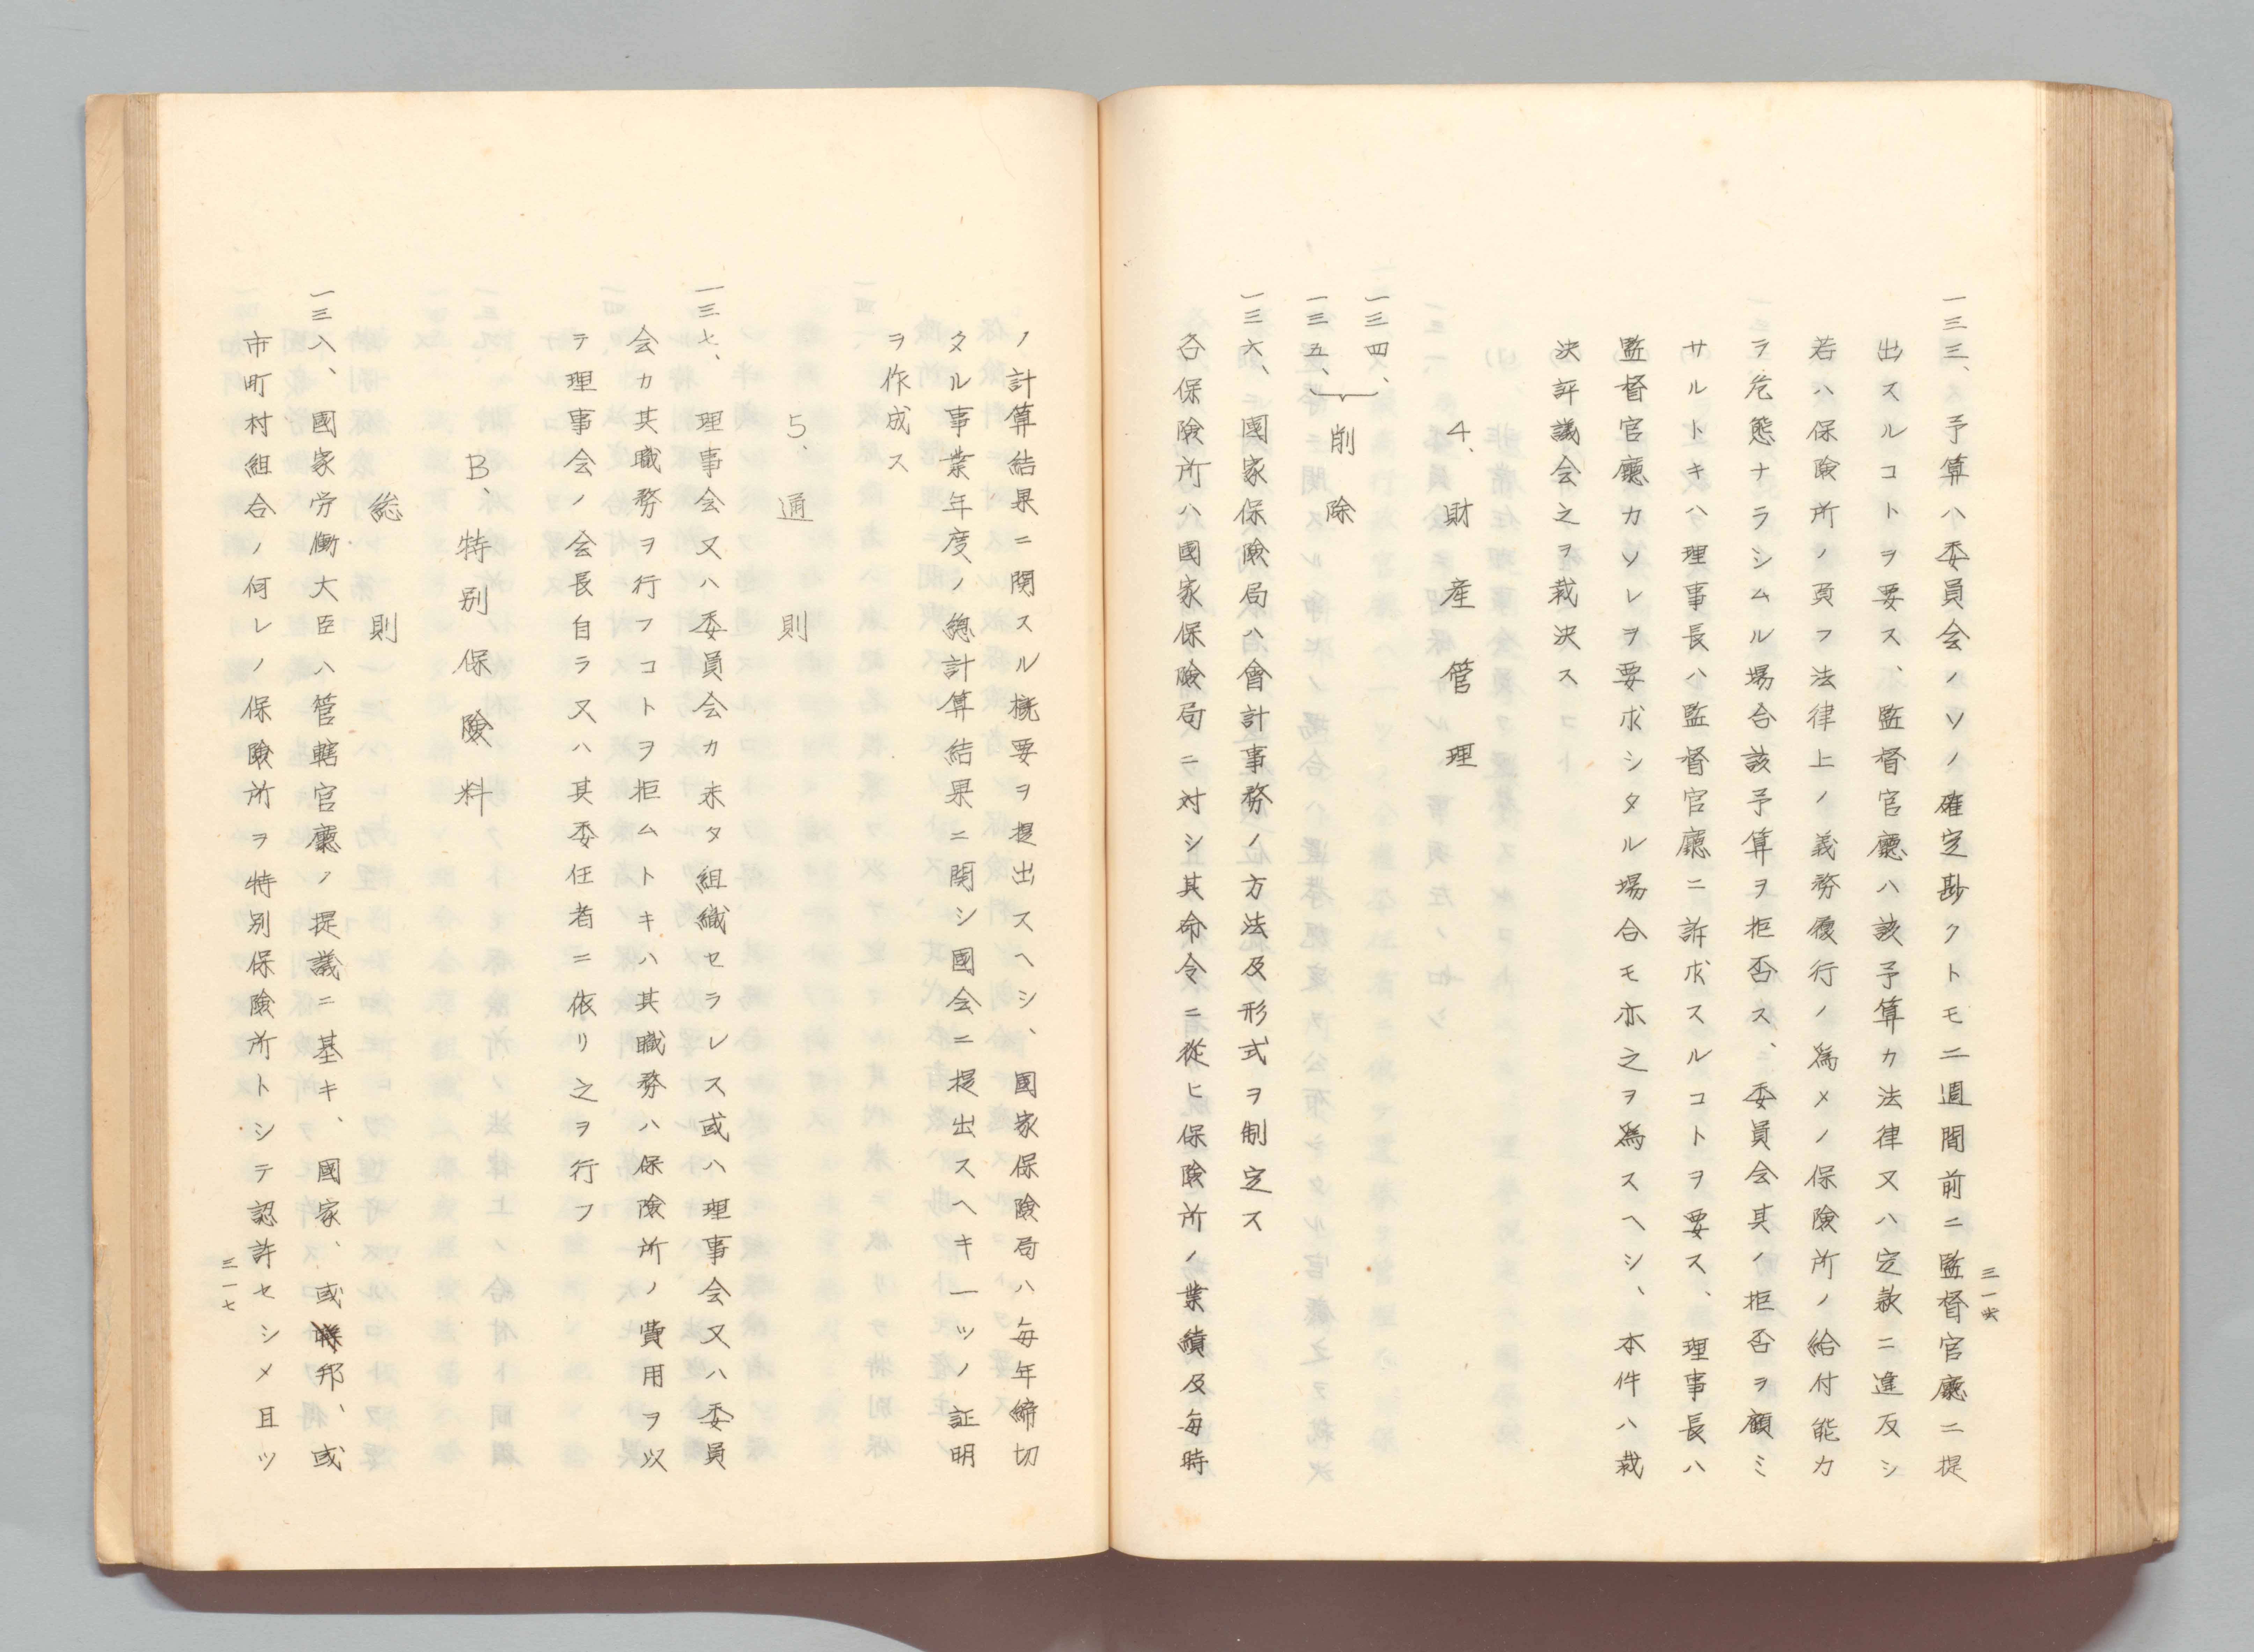 三一六
一三三、予算ハ委員会ノソノ確定尠クトモ二週間前ニ監督官廳ニ提
出スルコトヲ要ス、監督官廳ハ該予算カ法律又ハ定款ニ違反シ
若ハ保険所ノ負フ法律上ノ義務履行ノ爲メノ保険所ノ給付能カ
ラ危態ナラシムル場合該予算ヲ拒否ス、委員会其ノ拒否ヲ顧ミ
サルトキハ理事長ハ監督官廳ニ訴求スルコトヲ要ス、理事長ハ
監督官廳カソレヲ要求シタル場合モ亦之ヲ爲スヘシ、本件ハ裁
決評議会之ヲ裁決ス
4、財産管理
一三四、
一三五、削除
一三六、國家保險局ハ會計事務ノ方法及形式ヲ制定ス
各保險所ハ國家保險局ニ対シ其命令ニ從ヒ保險所ノ業績及毎時
ノ計算結果ニ関スル概要ヲ提出スヘシ、國家保險局ハ毎年締切
タル事業年度ノ總計算結果ニ関シ國会ニ提出スヘキ一ツノ証明
ヲ作成ス
5、通則
一三七、理事会又ハ委員会カ未タ組織セラレス或ハ理事会又ハ委員
会カ其職務ヲ行フコトヲ拒ムトキハ其職務ハ保險所ノ費用ヲ以
テ理事会ノ会長自ラ又ハ其委任者ニ依リ之ヲ行フ
B、特别保險料
総則
一三八、國家労働大臣ハ管轄官廳ノ提議ニ基キ、國家、或邦、或
市町村組合ノ何レノ保險所ヲ特别保險所トシテ認許セシメ且ツ
三一七